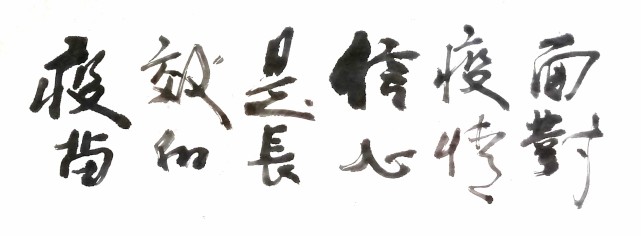 面對
疫情
信心
是長
效的
疫苗